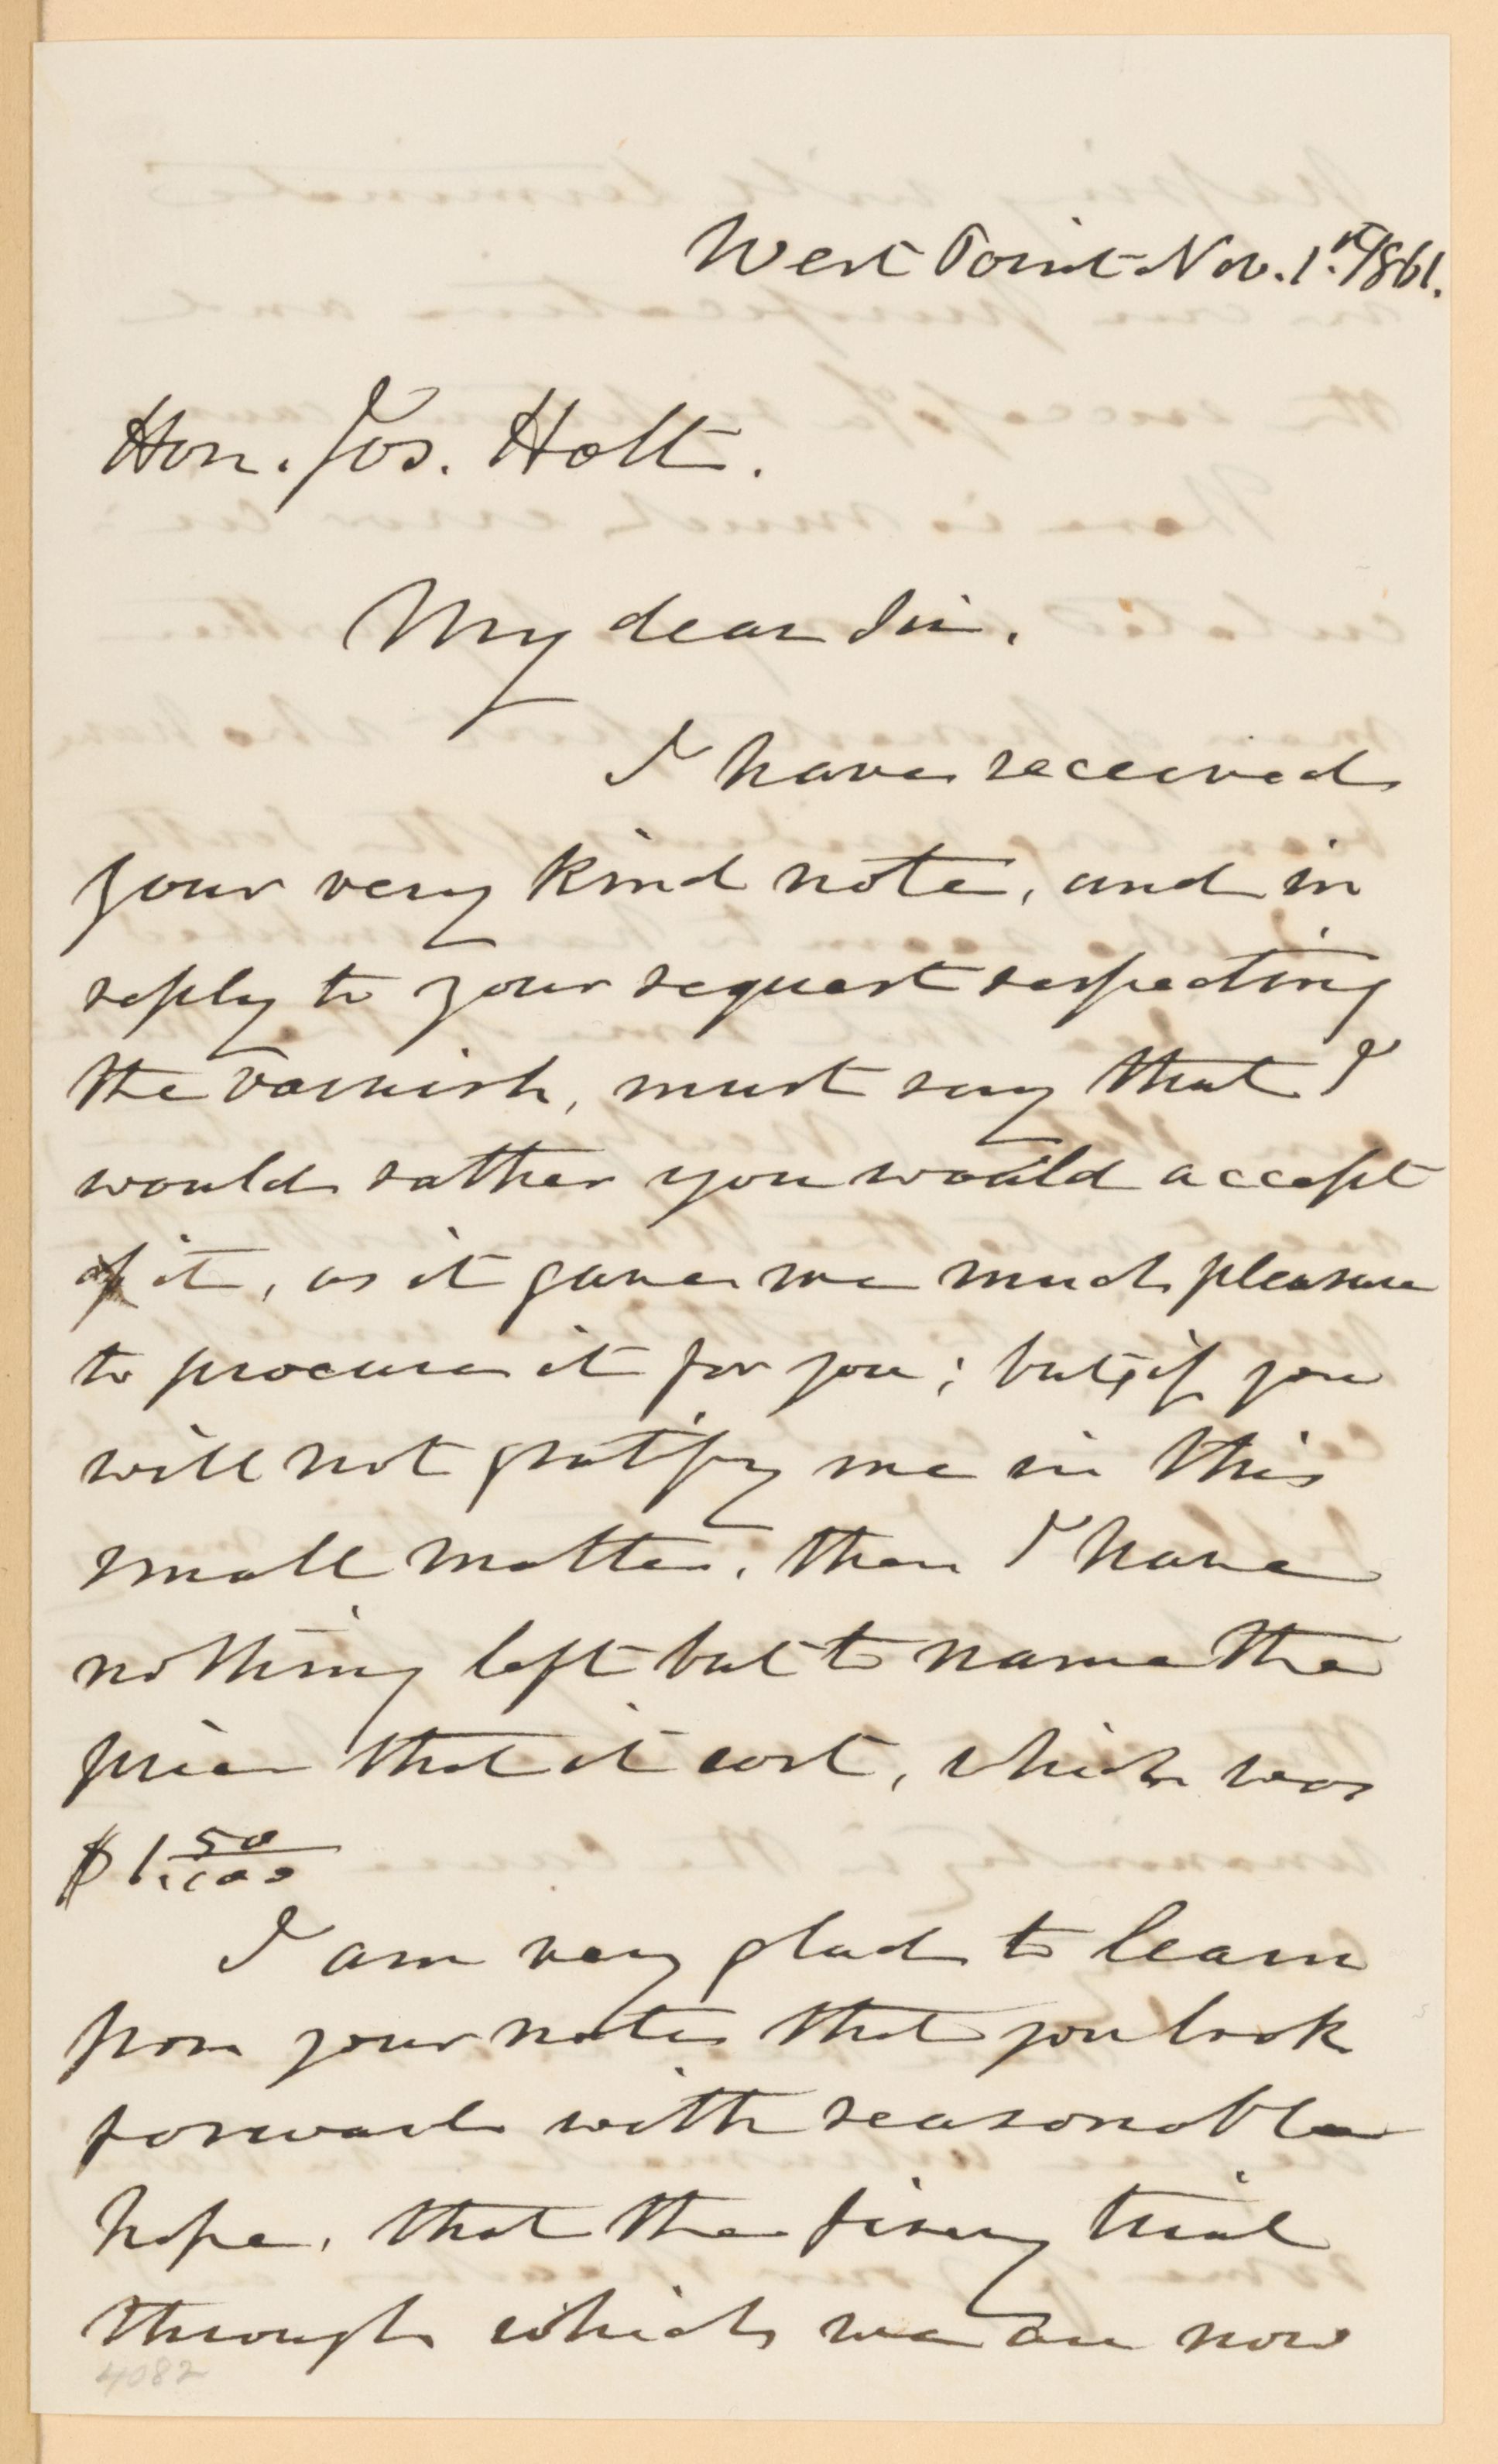 West Point Nov. 1st 1861.
Hon. Jos. Holt.
My dear Sir.
I have received
your very kind note, and in
reply to your request respecting
the varnish, must say that I
would rather you would accept
of it, as it gave me much pleasure
to procure it for you; but, if you
will not gratify me in this
small matter, then I have
nothing left but to name the
price that it cost, which was
$1.50/100
I am very glad to learn
from your note that you look
forward with reasonable
hope, that the fiery trial
through which we are now
4082